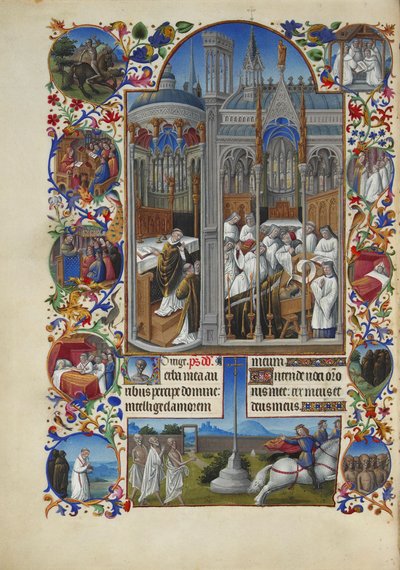 Dirige. ps. dd.
Verba mea au
ribus percipe domine:
intellige clamorem
meum
Intende voci orõ
nis mee: rex meus et
deus meus.